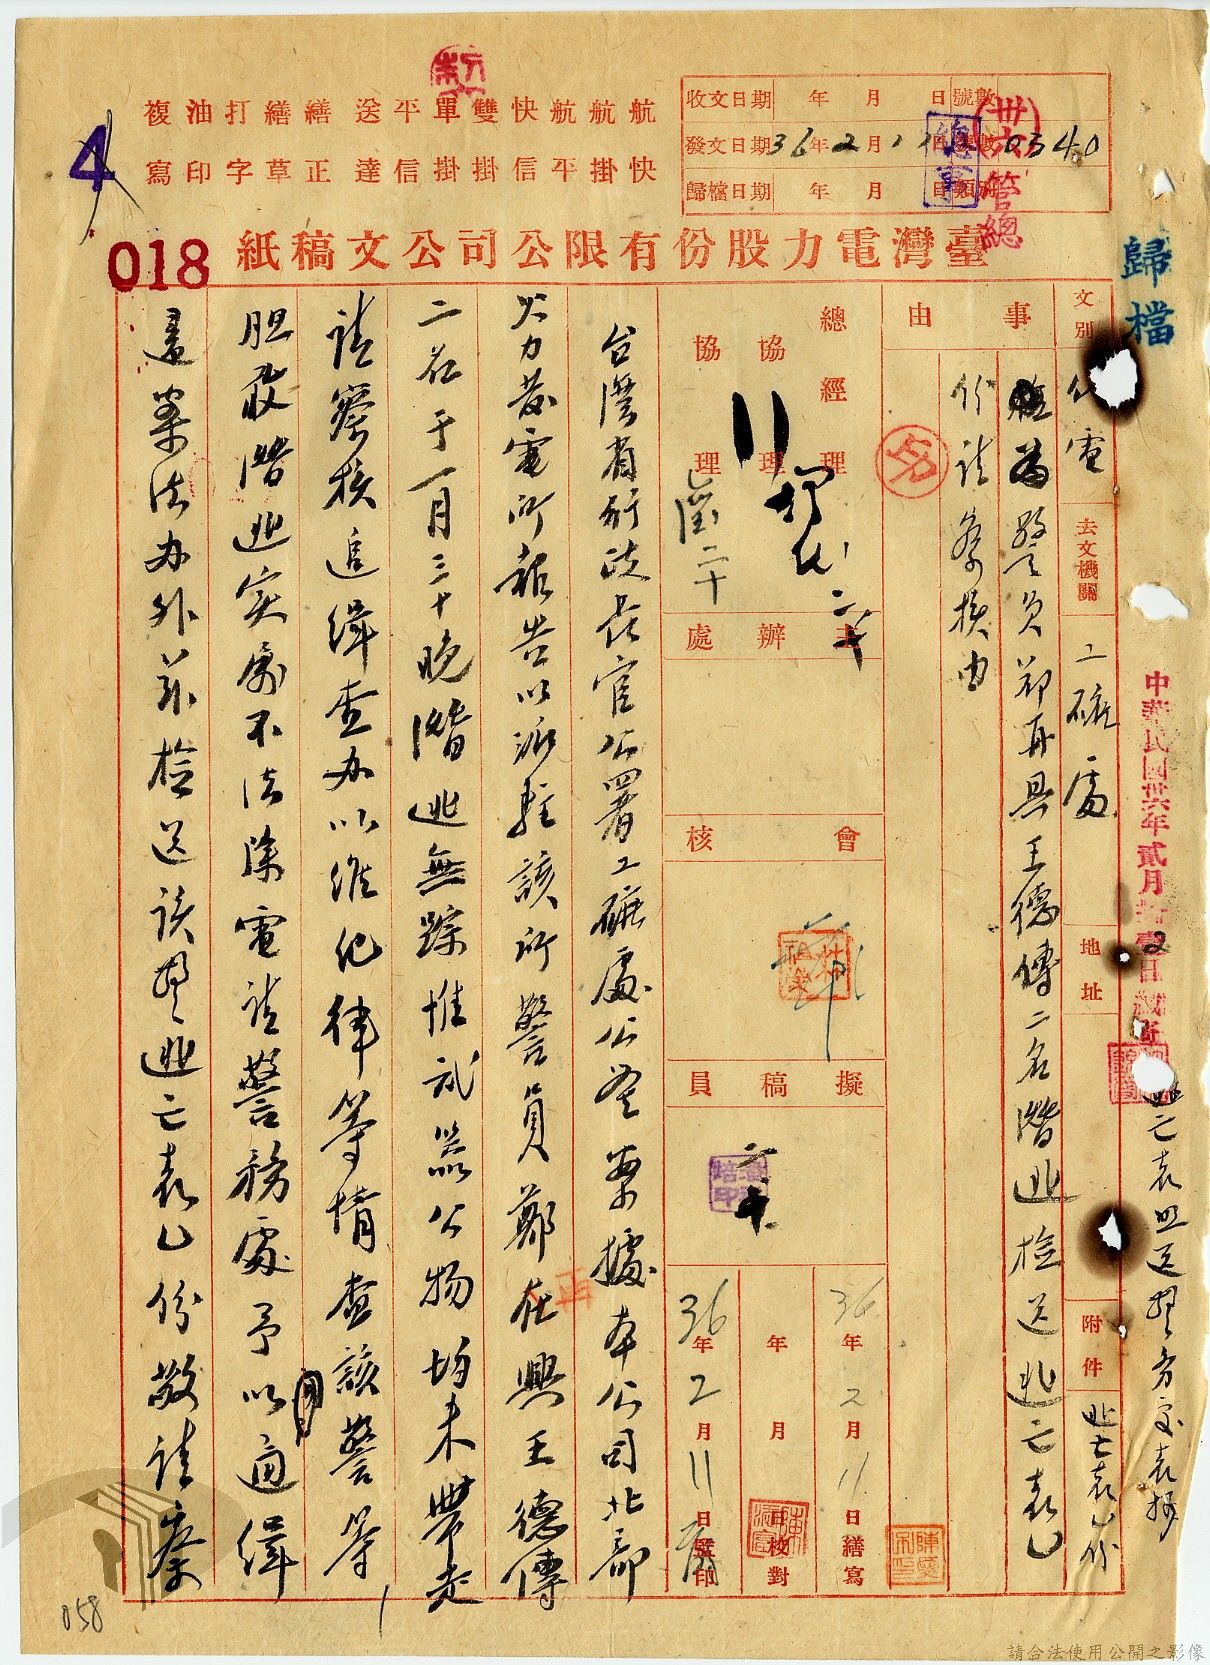 收文日期 年 月 日
發文日期 36年2月
歸檔日期 年 月 日
號數 0540
卅六 管總
總事
航快
航掛
航平
快信
雙掛
單掛
平信
送達
繕正
繕草
打字
油印
複寫
4
018
臺灣電力股份有限公司公文稿紙
歸檔
中華民國卅六年貳月
文別 代電
去文機關 工礦處
地址
附件 逃亡表乙份
事由
為警員鄭再興王德傳二名潛逃檢送逃亡表乙
份請察核由
總經理
協理
協理
主辦處
會核
擬稿員
36年2月11日繕寫
年 月 日校對
36年2月11日蓋印
台灣省行政長官公署工礦處公鑒案據本公司北部
火力發電所報告以派駐該所警員鄭在興王德傳
二名于一月三十晚潛逃無踪惟武器公物均未帶走
請察核追緝查办以維紀律等情查該警等
胆敢潛逃实屬不法除電請警務處予以通緝
遠案法办外茲檢送該警逃亡表乙份敬請察
058
請合法使用公開之影像